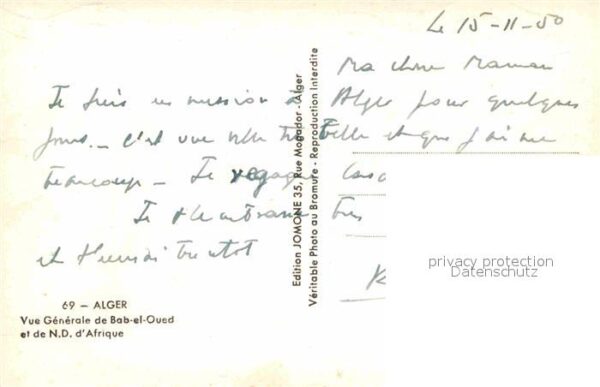 Le 15-11-50
Ma chère Maman
Je suis en mission à Alger pour quelques
jours - c'est une ville très belle et que j'aime
beaucoup - Je Casa
Je t'embrasse très
et bientôt
Edition JOMONE 35, Rue Mogador - Alger
Véritable Photo au Bromure - Reproduction Interdite
69 - ALGER
Vue Générale de Bab-el-Oued
et de N.D. d'Afrique
privacy protection
Datenschutz